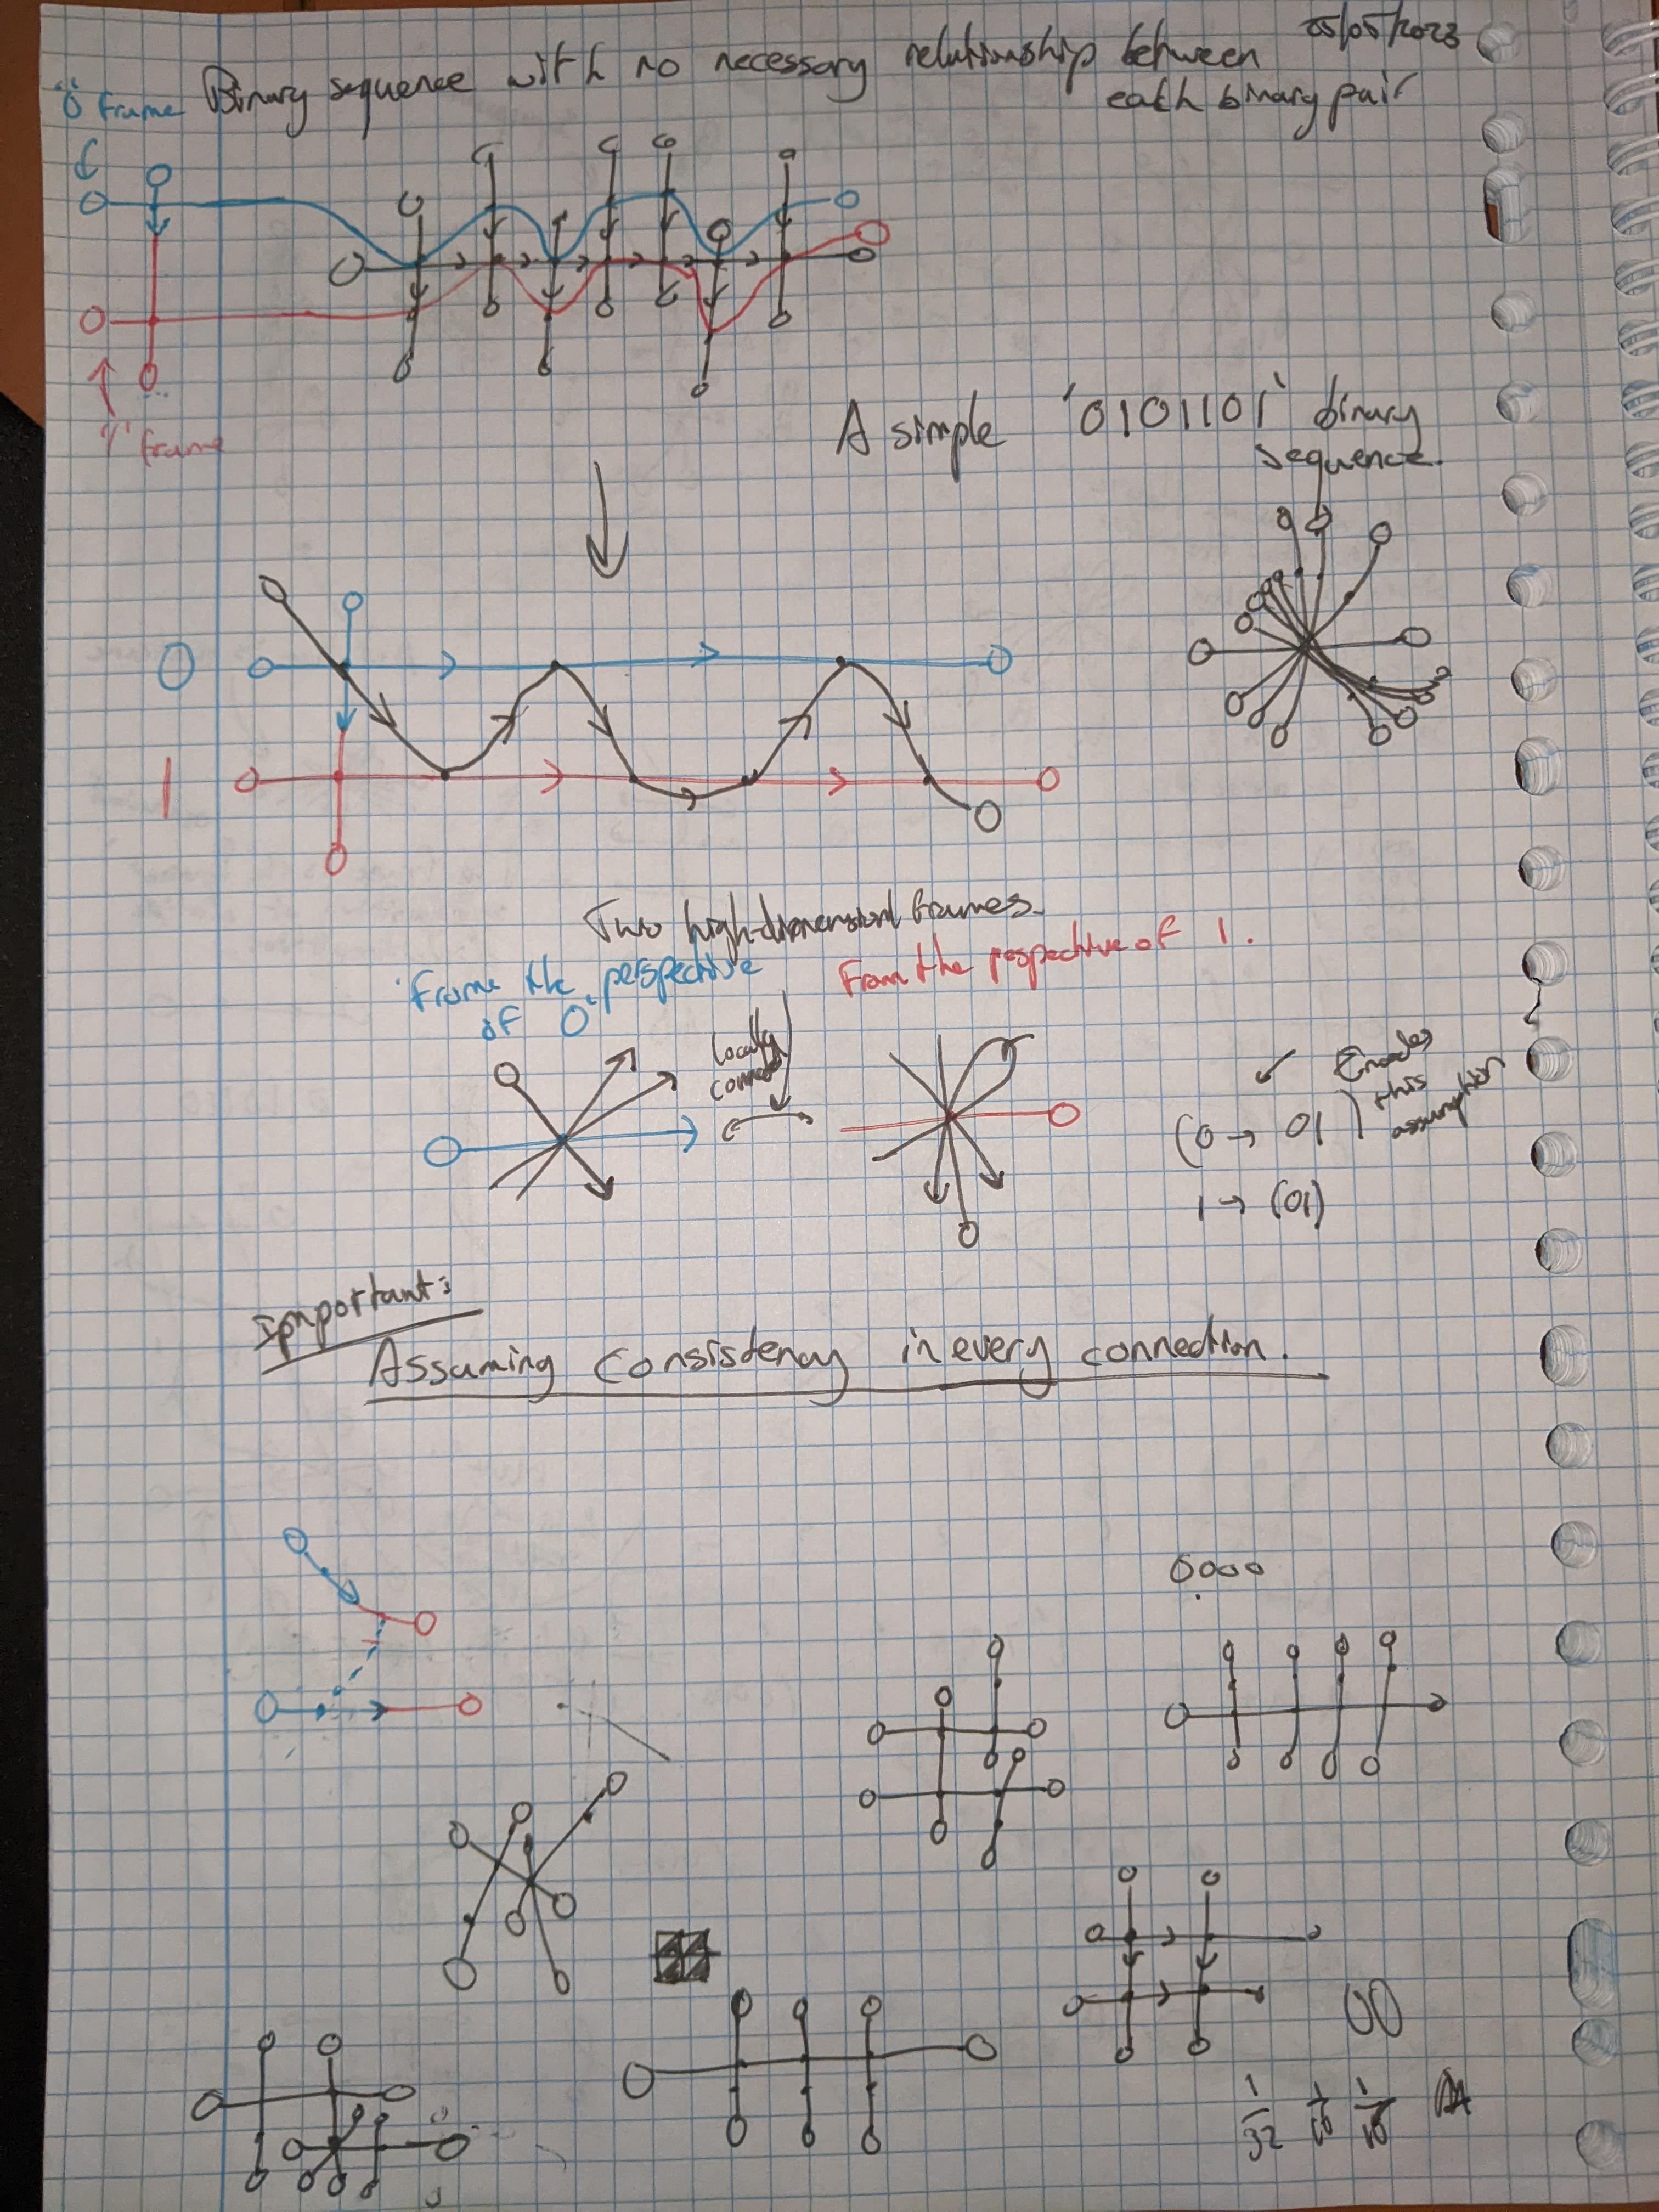 05/05/2023
"0" frame
Binary sequence with no necessary relationship between
each binary pair
"1" frame
A simple '0101101' binary
sequence.
0
1
Two high-dimensional frames.
'Frame the perspective
of 0'
From the pespective of 1.
Locally
(0 → 01)
this
assumption
1 → (01)
Important:
Assuming Consistency in every connection.
0000
00
1/32